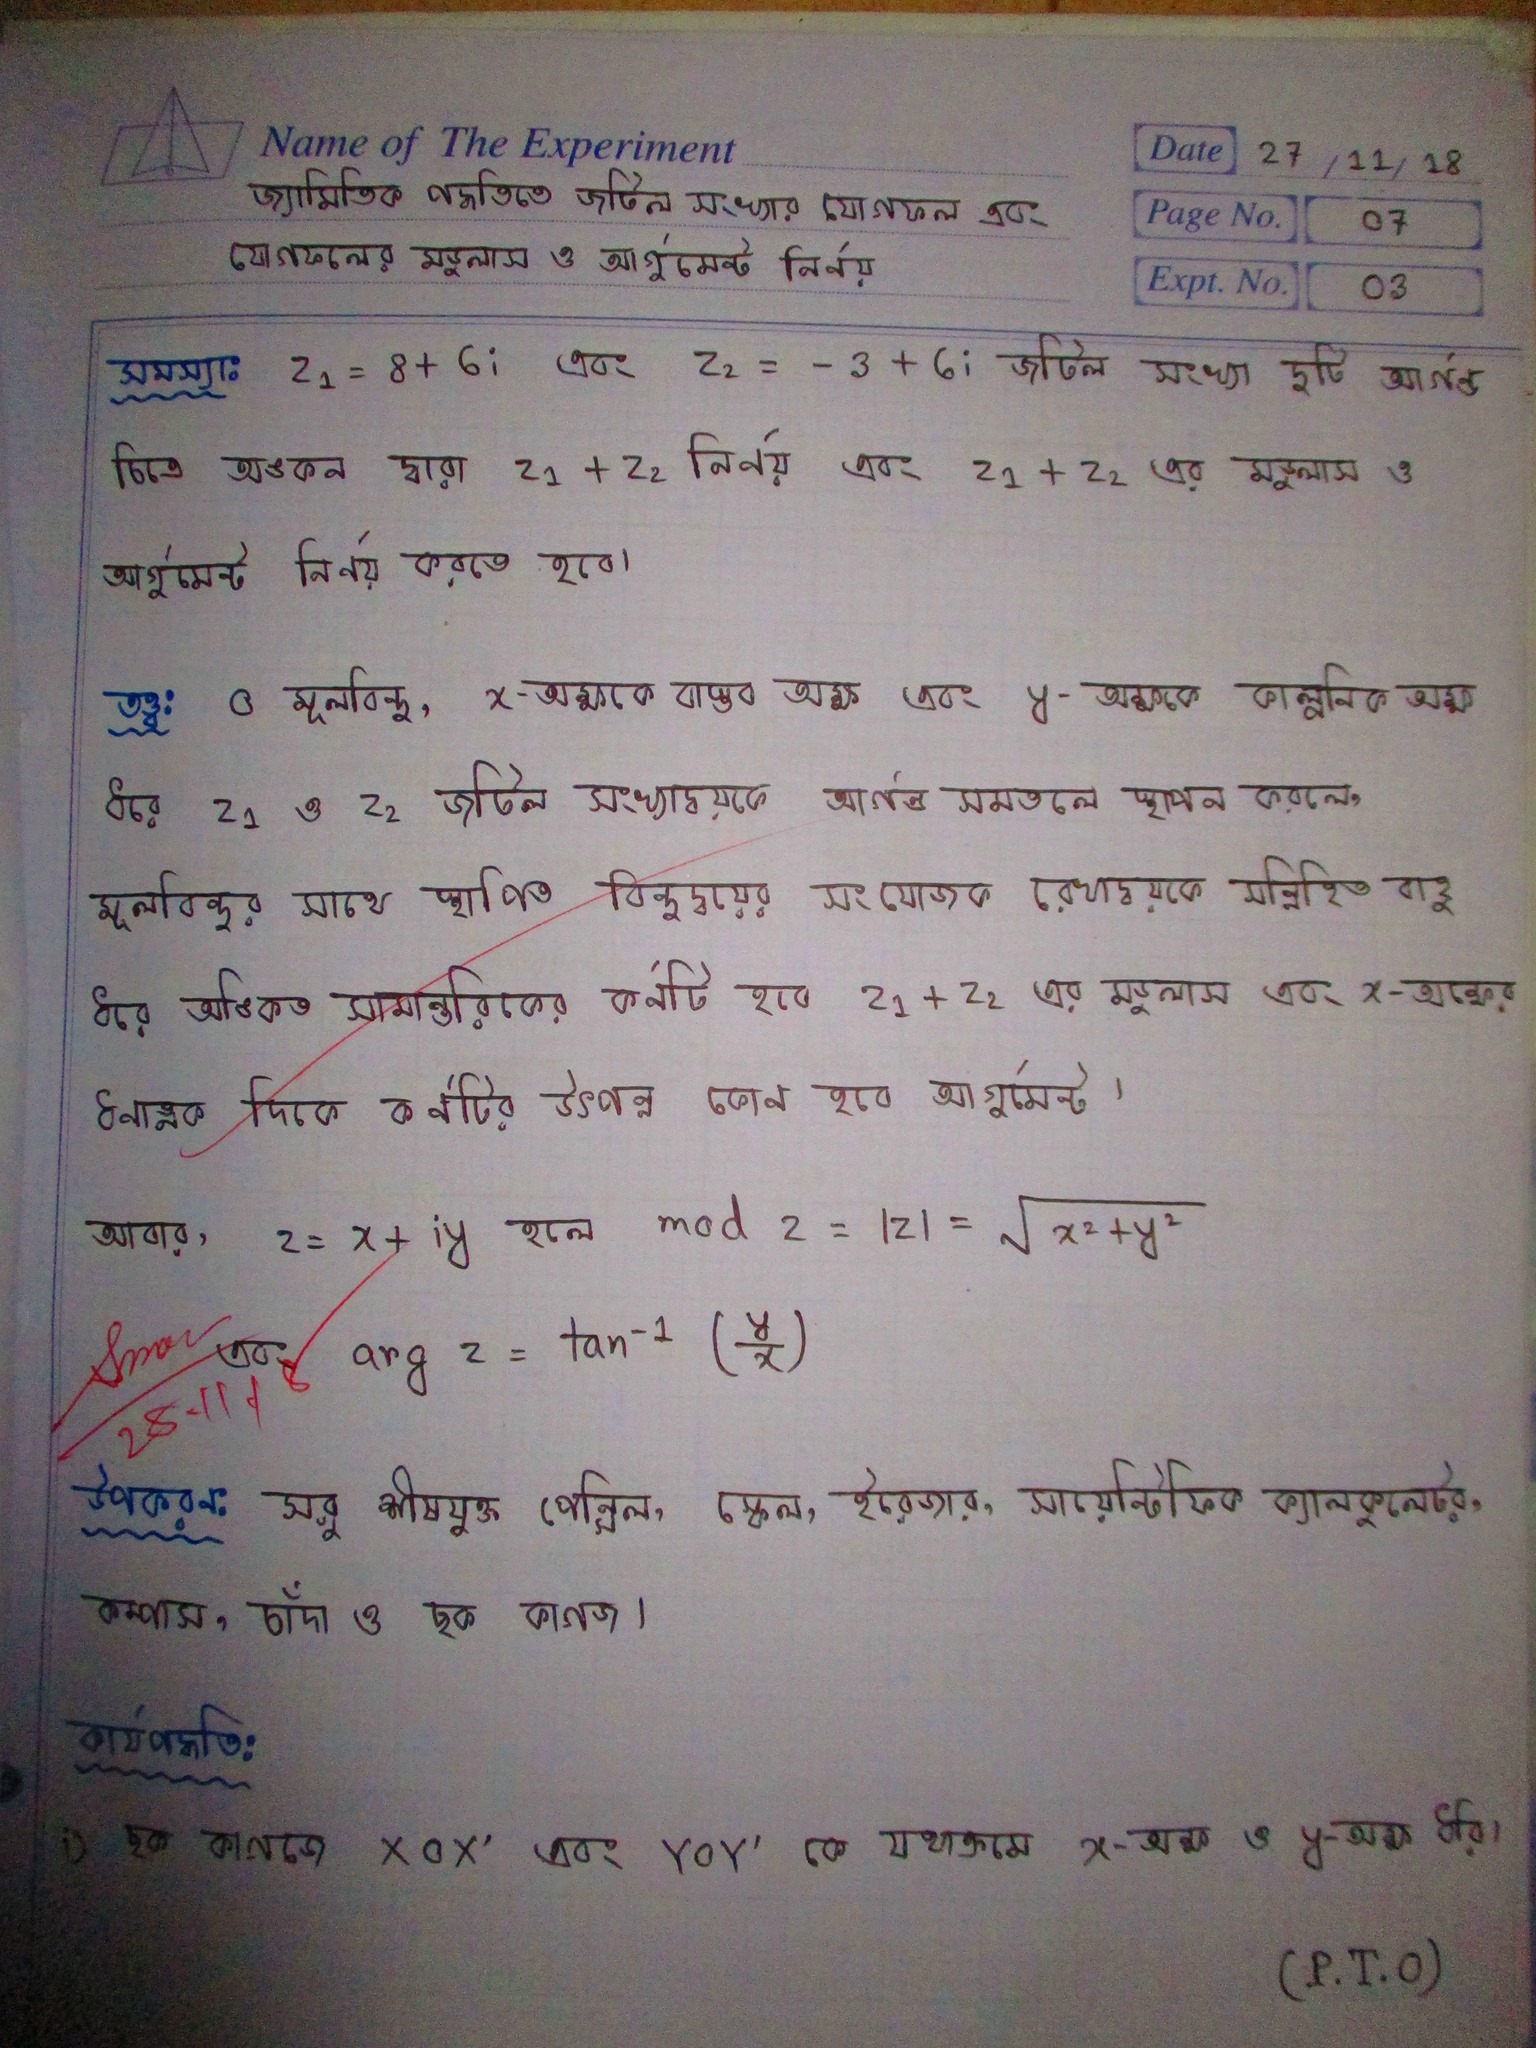 Name of The Experiment
জ্যামিতিক পদ্ধতিতে জটিল সংখ্যার যোগফল এবং
যোগফলের মডুলাস ও আর্গুমেন্ট নির্ণয়
Date 27/11/18
Page No. 07
Expt. No. 03
সমস্যা: z₁ = 8 + 6i এবং z₂ = - 3 + 6i জটিল সংখ্যা দুটি আর্গন্ড
চিত্রে অঙ্কন দ্বারা z₁ + z₂ নির্ণয় এবং z₁ + z₂ এর মডুলাস ও
আর্গুমেন্ট নির্ণয় করতে হবে।
তত্ত্ব: O মূলবিন্দু, x-অক্ষকে বাস্তব অক্ষ এবং y-অক্ষকে কাল্পনিক অক্ষ
ধরে z₁ ও z₂ জটিল সংখ্যাদ্বয়কে আর্গন্ড সমতলে স্থাপন করলে,
মূলবিন্দুর সাথে স্থাপিত বিন্দুদ্বয়ের সংযোজক রেখাদ্বয়কে সন্নিহিত বাহু
ধরে অঙ্কিত সামান্তরিকের কর্ণটি হবে z₁ + z₂ এর মডুলাস এবং x-অক্ষের
ধনাত্মক দিকে কর্ণটির উৎপন্ন কোন হবে আর্গুমেন্ট।
আবার, z = x + iy হলে mod z = |z| = √(x² + y²)
এবং arg z = tan⁻¹ (y/x)
28-11-18
উপকরণ: সরু শীষযুক্ত পেন্সিল, স্কেল, ইরেজার, সায়েন্টিফিক ক্যালকুলেটর,
কম্পাস, চাঁদা ও ছক কাগজ।
কার্যপদ্ধতি:
i) ছক কাগজে XOX' এবং YOY' কে যথাক্রমে x-অক্ষ ও y-অক্ষ ধরি।
(P.T.O)